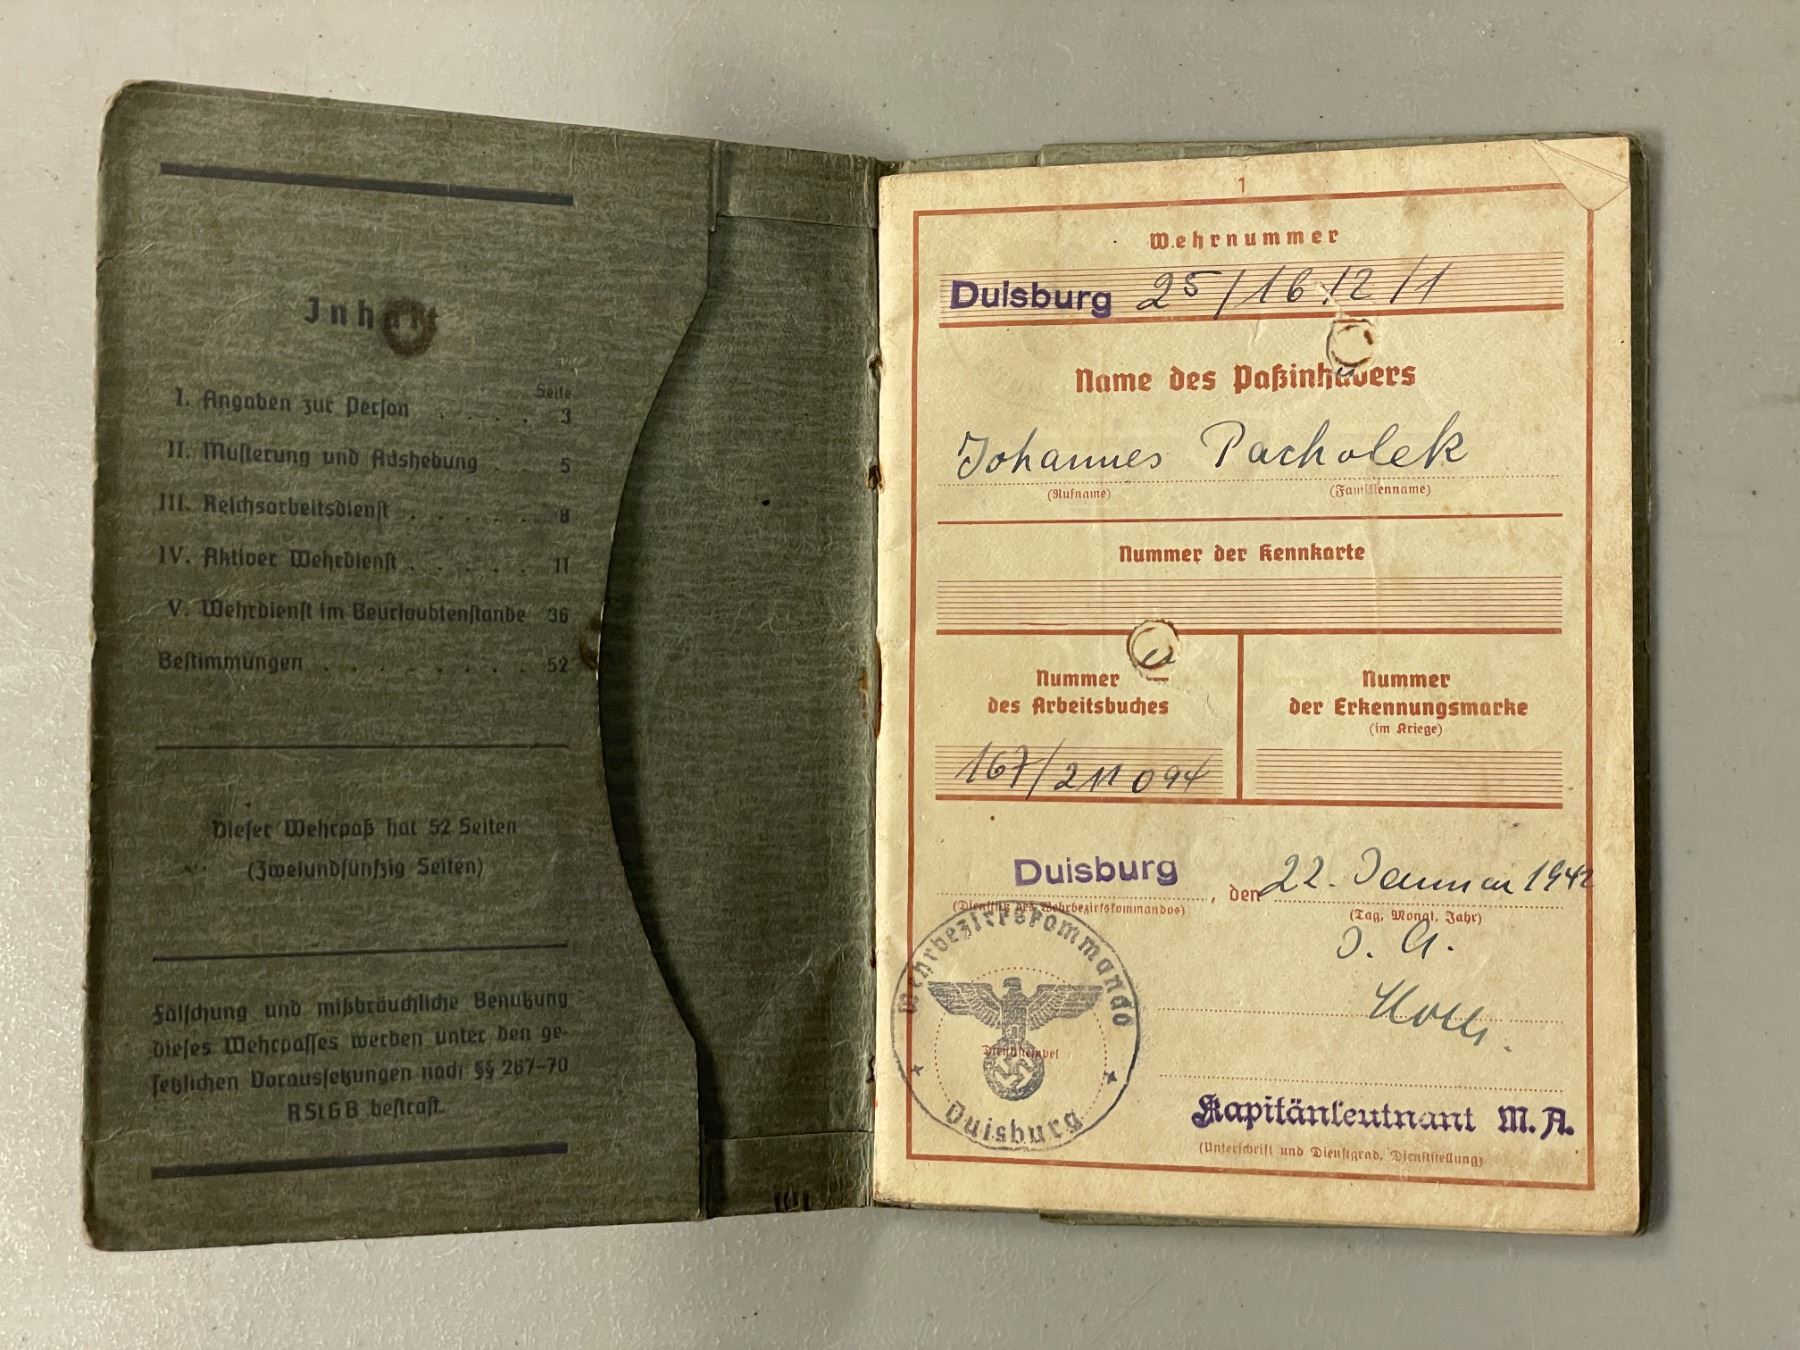 Inhalt
Seite
I. Angaben zur Person . . . . . 3
II. Musterung und Aushebung . 5
III. Reichsarbeitsdienst . . . . . . 8
IV. Aktiver Wehrdienst . . . . . 11
V. Wehrdienst im Beurlaubtenstande 36
Bestimmungen . . . . . . . . . 52
Dieser Wehrpaß hat 52 Seiten
(Zweiundfünfzig Seiten)
Fälschung und mißbräuchliche Benutzung
dieses Wehrpasses werden unter den ge-
setzlichen Voraussetzungen nach §§ 267-70
RStGB bestraft.
1
Wehrnummer
Duisburg 25/16 12/1
Name des Paßinhabers
Johannes Pacholek
(Rufname) (Familienname)
Nummer der Kennkarte
Nummer
des Arbeitsbuches
167/211 094
Nummer
der Erkennungsmarke
(im Kriege)
Duisburg, den 22. Januar 1942
(Dienstsitz des Wehrbezirkskommandos) (Tag, Monat, Jahr)
J. A.
Wehrbezirkskommando
Dienststempel
Duisburg
Kapitänleutnant M. A.
(Unterschrift und Dienstgrad, Dienststellung)